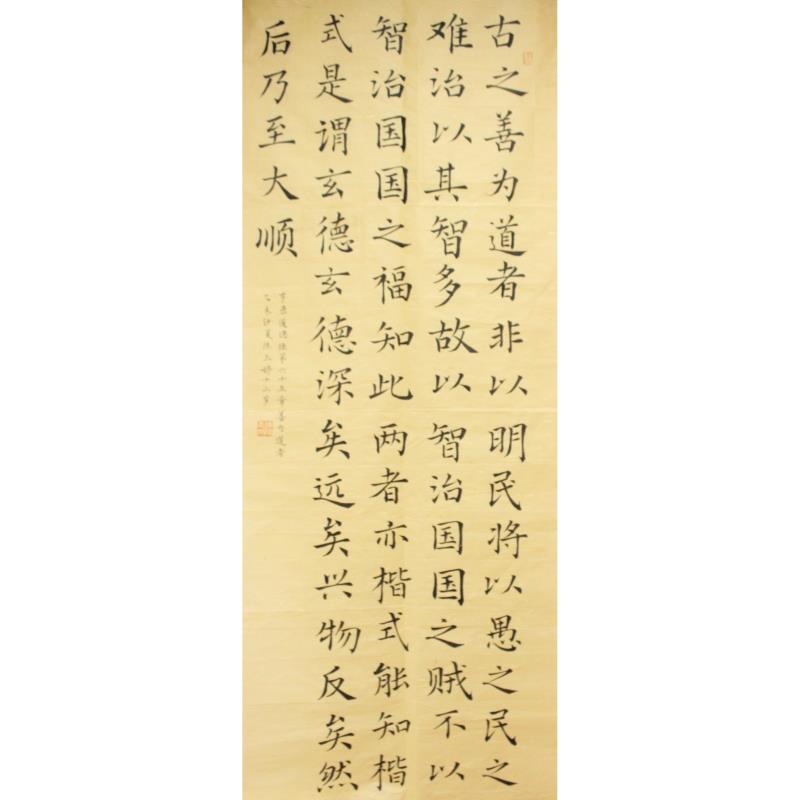 古之善为道者非以明民将以愚之民之
难治以其智多故以智治国国之贼不以
智治国国之福知此两者亦楷式能知楷
式是谓玄德玄德深矣远矣兴物反矣然
后乃至大顺
道德经第六十五章善为道者
乙未仲夏